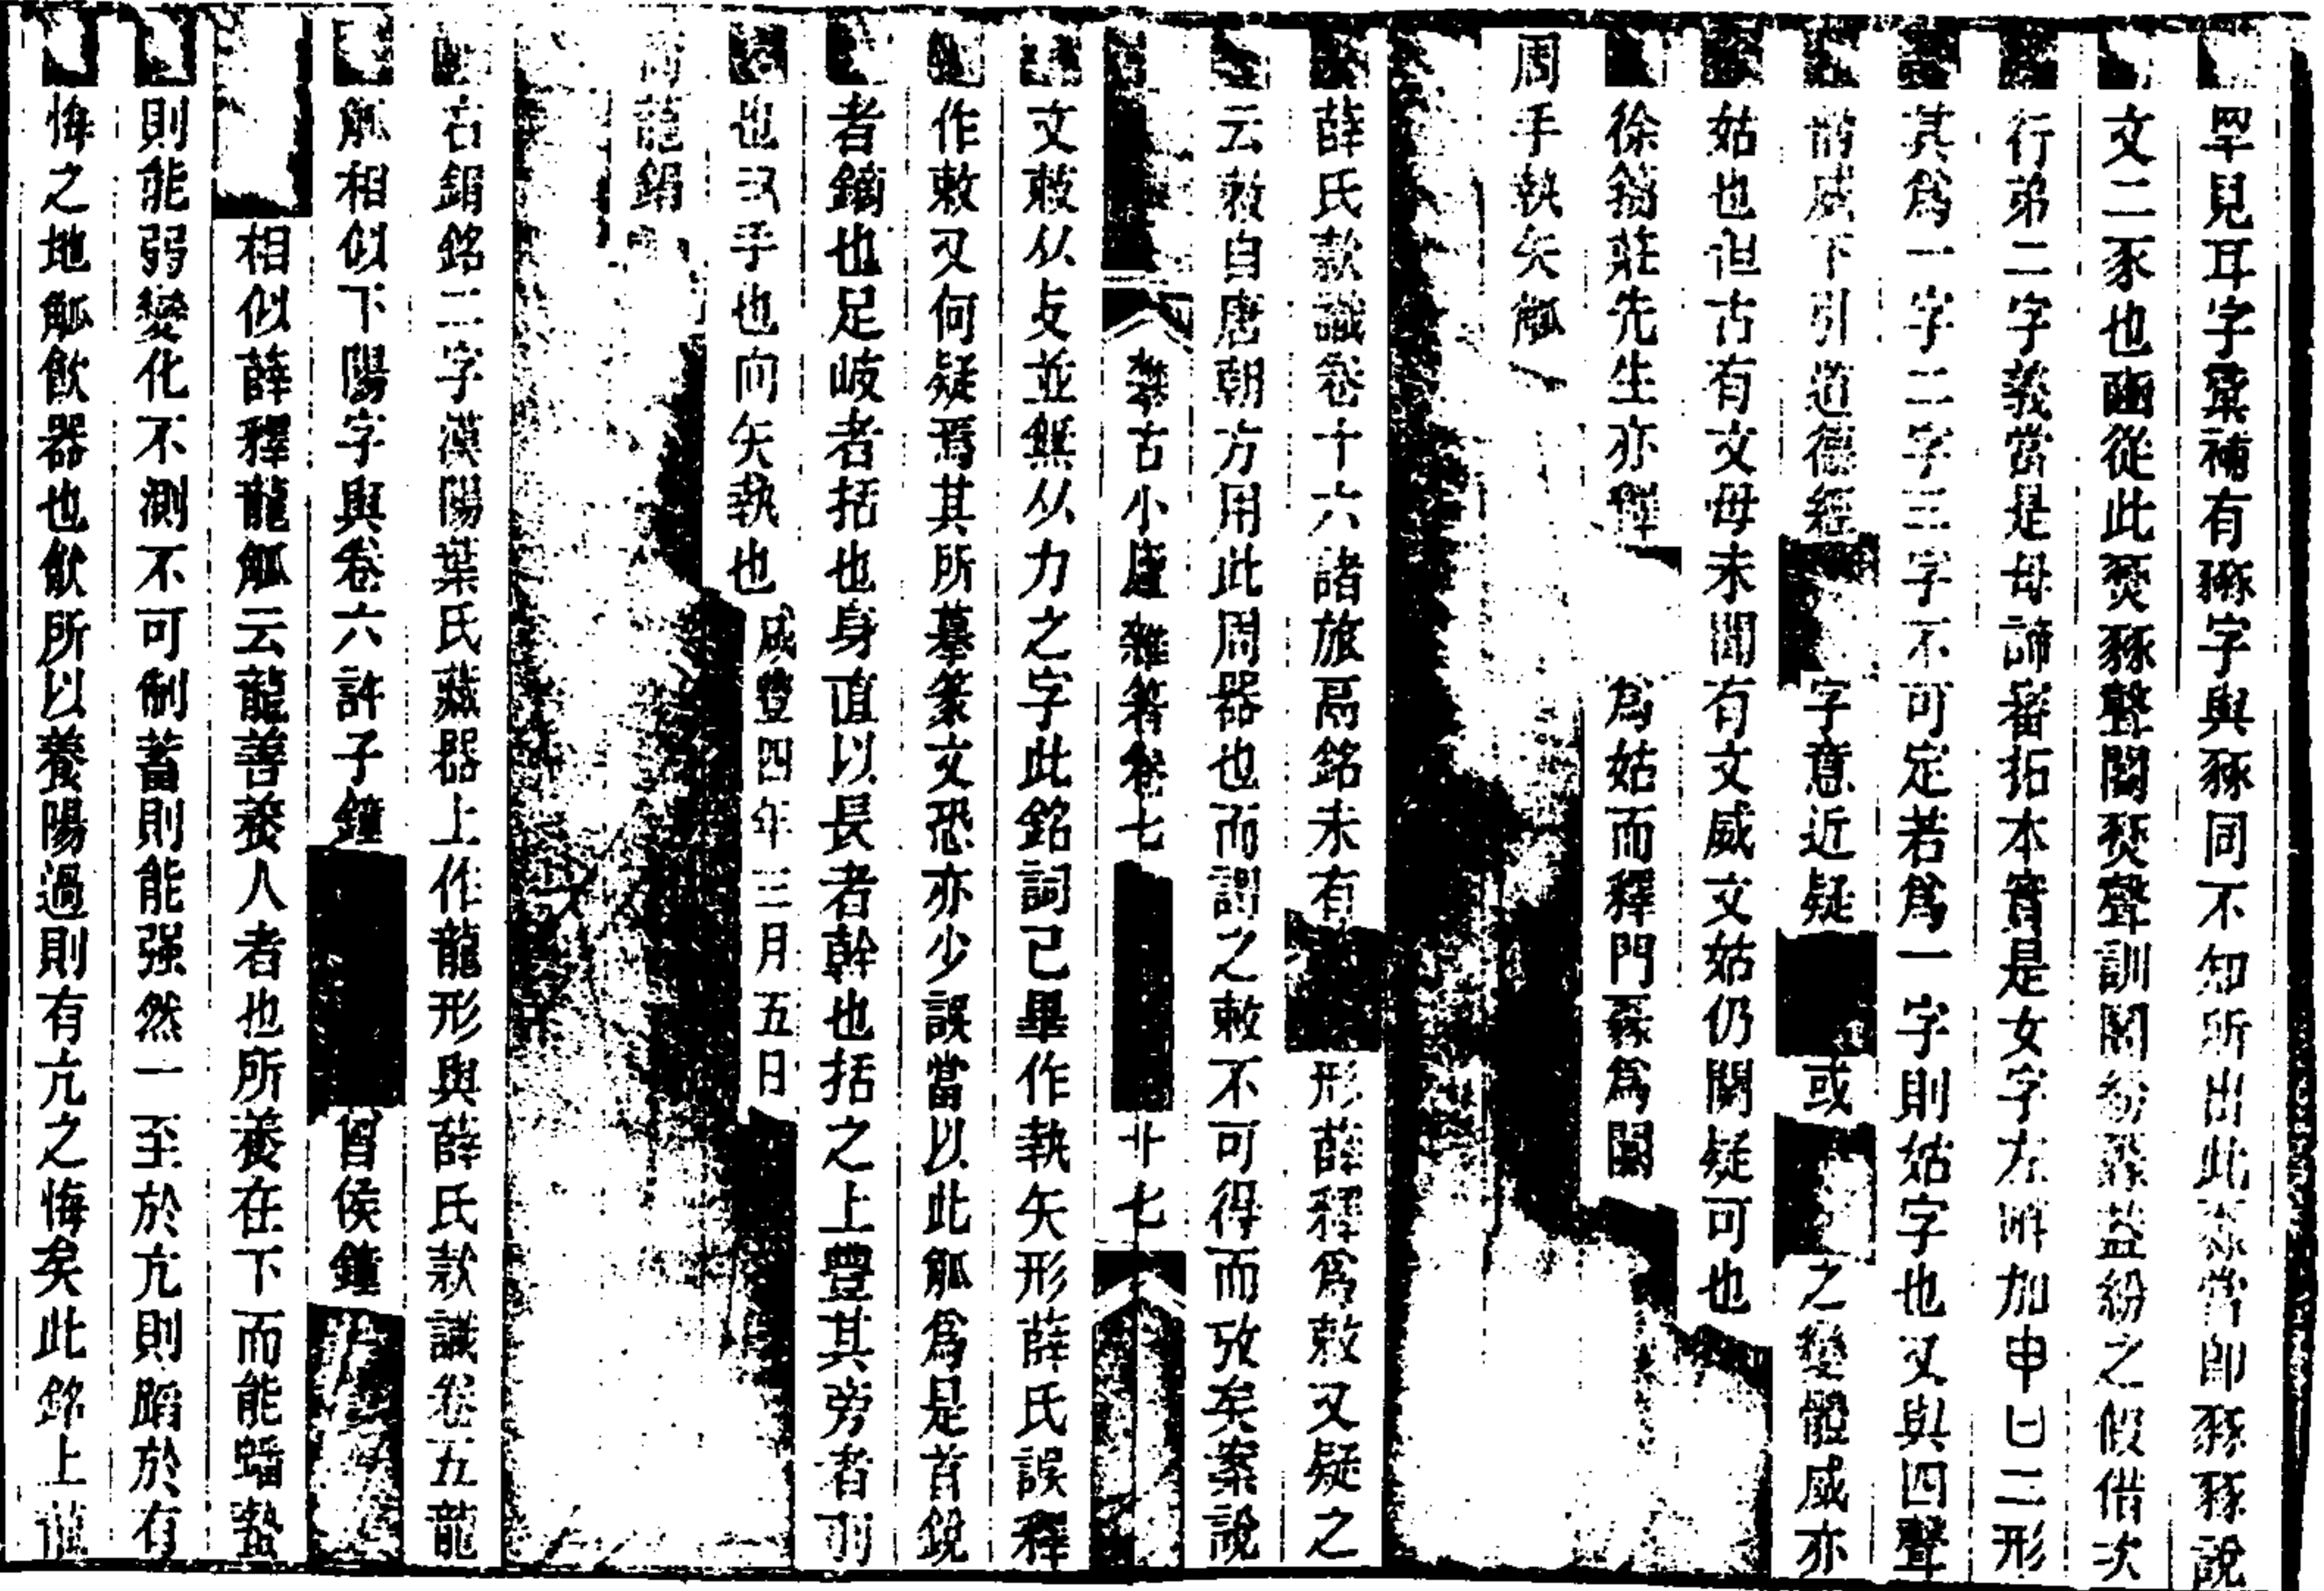 罕見耳字彙補有豩字與豩同不知所出此豩當卽豩豩說
文二豕也豳從此燹豩聲闅燹聲訓闅紛豩蓋紛之假借次
行弟二字義當是母諦審拓本實是女字左㫄加申口二形
其爲一字二字三字不可定若爲一字則姑字也又與四聲
韵威下引道德經字意近疑或之變體威亦
姑也但古有文母未聞有文威文姑仍闕疑可也
徐籀莊先生亦釋爲姑而釋門豩爲闅
周手執矢觚
薛氏款識卷十六諸旅鬲銘末有形薛釋爲敕又疑之
云敕自唐朝方用此周器也而謂之敕不可得而攷矣案說
攀古小廬雜箸卷七 廿七
文敕从攴並無从力之字此銘詞已畢作執矢形薛氏誤釋
作敕又何疑焉其所摹篆文恐亦少誤當以此觚爲是首銳
者鏑也足岐者括也身直以長者幹也括之上豐其旁者羽
也又手也向矢執也咸豐四年三月五日
商龍鋗
右鋗銘二字漢陽葉氏藏器上作龍形與薛氏款識卷五龍
觚相似下陽字與卷六許子鐘曾侯鐘
相似薛釋龍觚云龍善養人者也所養在下而能蟠蟄
則能弱變化不測不可制蓄則能强然一至於亢則蹈於有
悔之地觚飮器也飮所以養陽過則有亢之悔矣此銘上龍